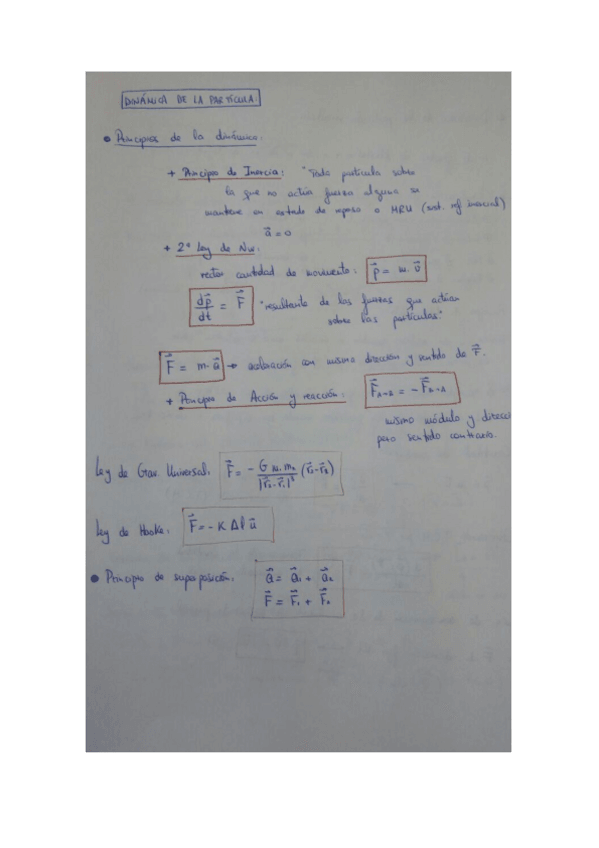 DINÁMICA DE LA PARTÍCULA.
• Principios de la dinámica.
+ Principio de Inercia: "Toda partícula sobre
la que no actúa fuerza alguna se
mantiene en estado de reposo o MRU (sist. ref inercial)
a⃗ = 0
+ 2ª Ley de New:
vector cantidad de movimiento: p⃗ = m · v⃗
dp⃗/dt = F⃗ "resultante de las fuerzas que actúan
sobre las partículas"
F⃗ = m · a⃗ → aceleración con misma dirección y sentido de F⃗.
+ Principio de Acción y reacción: F⃗A→B = − F⃗B→A
mismo módulo y direcc
pero sentido contrario.
Ley de Grav. Universal: F⃗ = − G m₁ m₂ / |r⃗₂ − r⃗₁|³
Ley de Hooke: F⃗ = − K Δl u⃗
• Principio de superposición: a⃗ = a⃗₁ + a⃗₂
F⃗ = F⃗₁ + F⃗₂